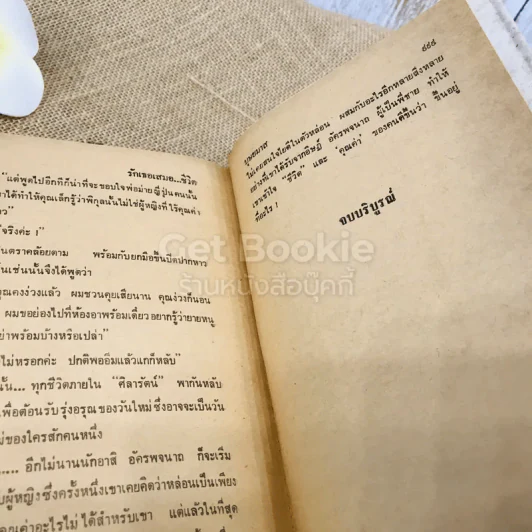 รักเธอเสมอ...ชีวิต
"แต่พูดไปอีกทีก็น่าที่จะขอบใจพ่อม่ายญี่ปุ่นคนนั้น
เาได้ทำให้คุณเล็กรู้ว่าพิกุลนั้นไม่ใช่ผู้หญิงที่ไร้คุณค่า
จริงค่ะ !"
นตราคล้อยตาม พร้อมกับยกมือขึ้นปิดปากหาว
ห็นเช่นนั้นจึงได้พูดว่า
คุณคงง่วงแล้ว ผมชวนคุยเสียนาน คุณง่วงก็นอน
ผมขอย่องไปที่ห้องอาพร้อมเดี๋ยวอยากรู้ว่ายายหนู
ย่าพร้อมบ้างหรือเปล่า"
ไม่หรอกค่ะ ปกติพออิ่มแล้วแกก็หลับ"
นั้น... ทุกชีวิตภายใน "ศิลารัตน์" พากันหลับ
เพื่อต้อนรับรุ่งอรุณของวันใหม่ซึ่งอาจจะเป็นวัน
ม่ของใครสักคนหนึ่ง
... อีกไม่นานนักอาสิ อัครพจนาถ ก็จะเริ่ม
บผู้หญิงซึ่งครั้งหนึ่งเขาเคยคิดว่าหล่อนเป็นเพียง
คุณค่าอะไรไม่ได้สำหรับเขา แต่แล้วในที่สุด
๔๔๔
บุษยมาส
ไม่เคยสนใจใยดีในตัวหล่อน ผสมกับอะไรอีกหลายสิ่งหลาย
อย่างที่เขาได้รับจากอิษฎ์ อัครพจนาถ ผู้เป็นพี่ชาย ทำให้
เขาเข้าใจ "ชีวิต" และ "คุณค่า" ของคนดีขึ้นว่า ขึ้นอยู่
ที่อะไร !
จบบริบูรณ์
Get Bookie
ร้านหนังสือบุ๊คกี้